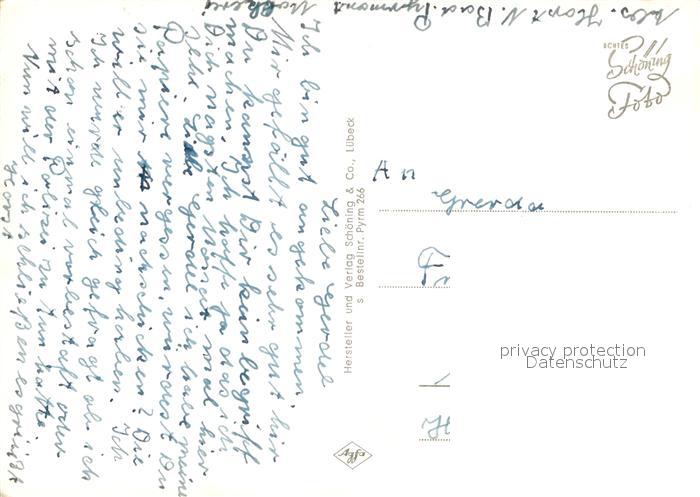 Abs. Horst N. Bad. Pyrmont
Liebe Gerda!
Ich bin gut angekommen,
Mir gefällt es sehr gut hir
Du kanst Dir kein begriff
machen. Ich hoffe ja das ich
Dich nägsten Monat mal hier
sehe. Liebe Gerda! ich habe meine
Papiere vergessen, würdest Du
sie mir nachschicken? Die
will er unbeding haben. Ich
Ich wurde gleich gefragt ob ich
schon einmal vorbestaft oder
mit der Polizei zu tun hatte
Nun will ich schließen es grüßt
Horst
Hersteller und Verlag Schöning & Co., Lübeck
s. Bestellnr. Pyrm 266
ECHTES
Schöning
Foto
An
Gerda
privacy protection
Datenschutz
Agfa